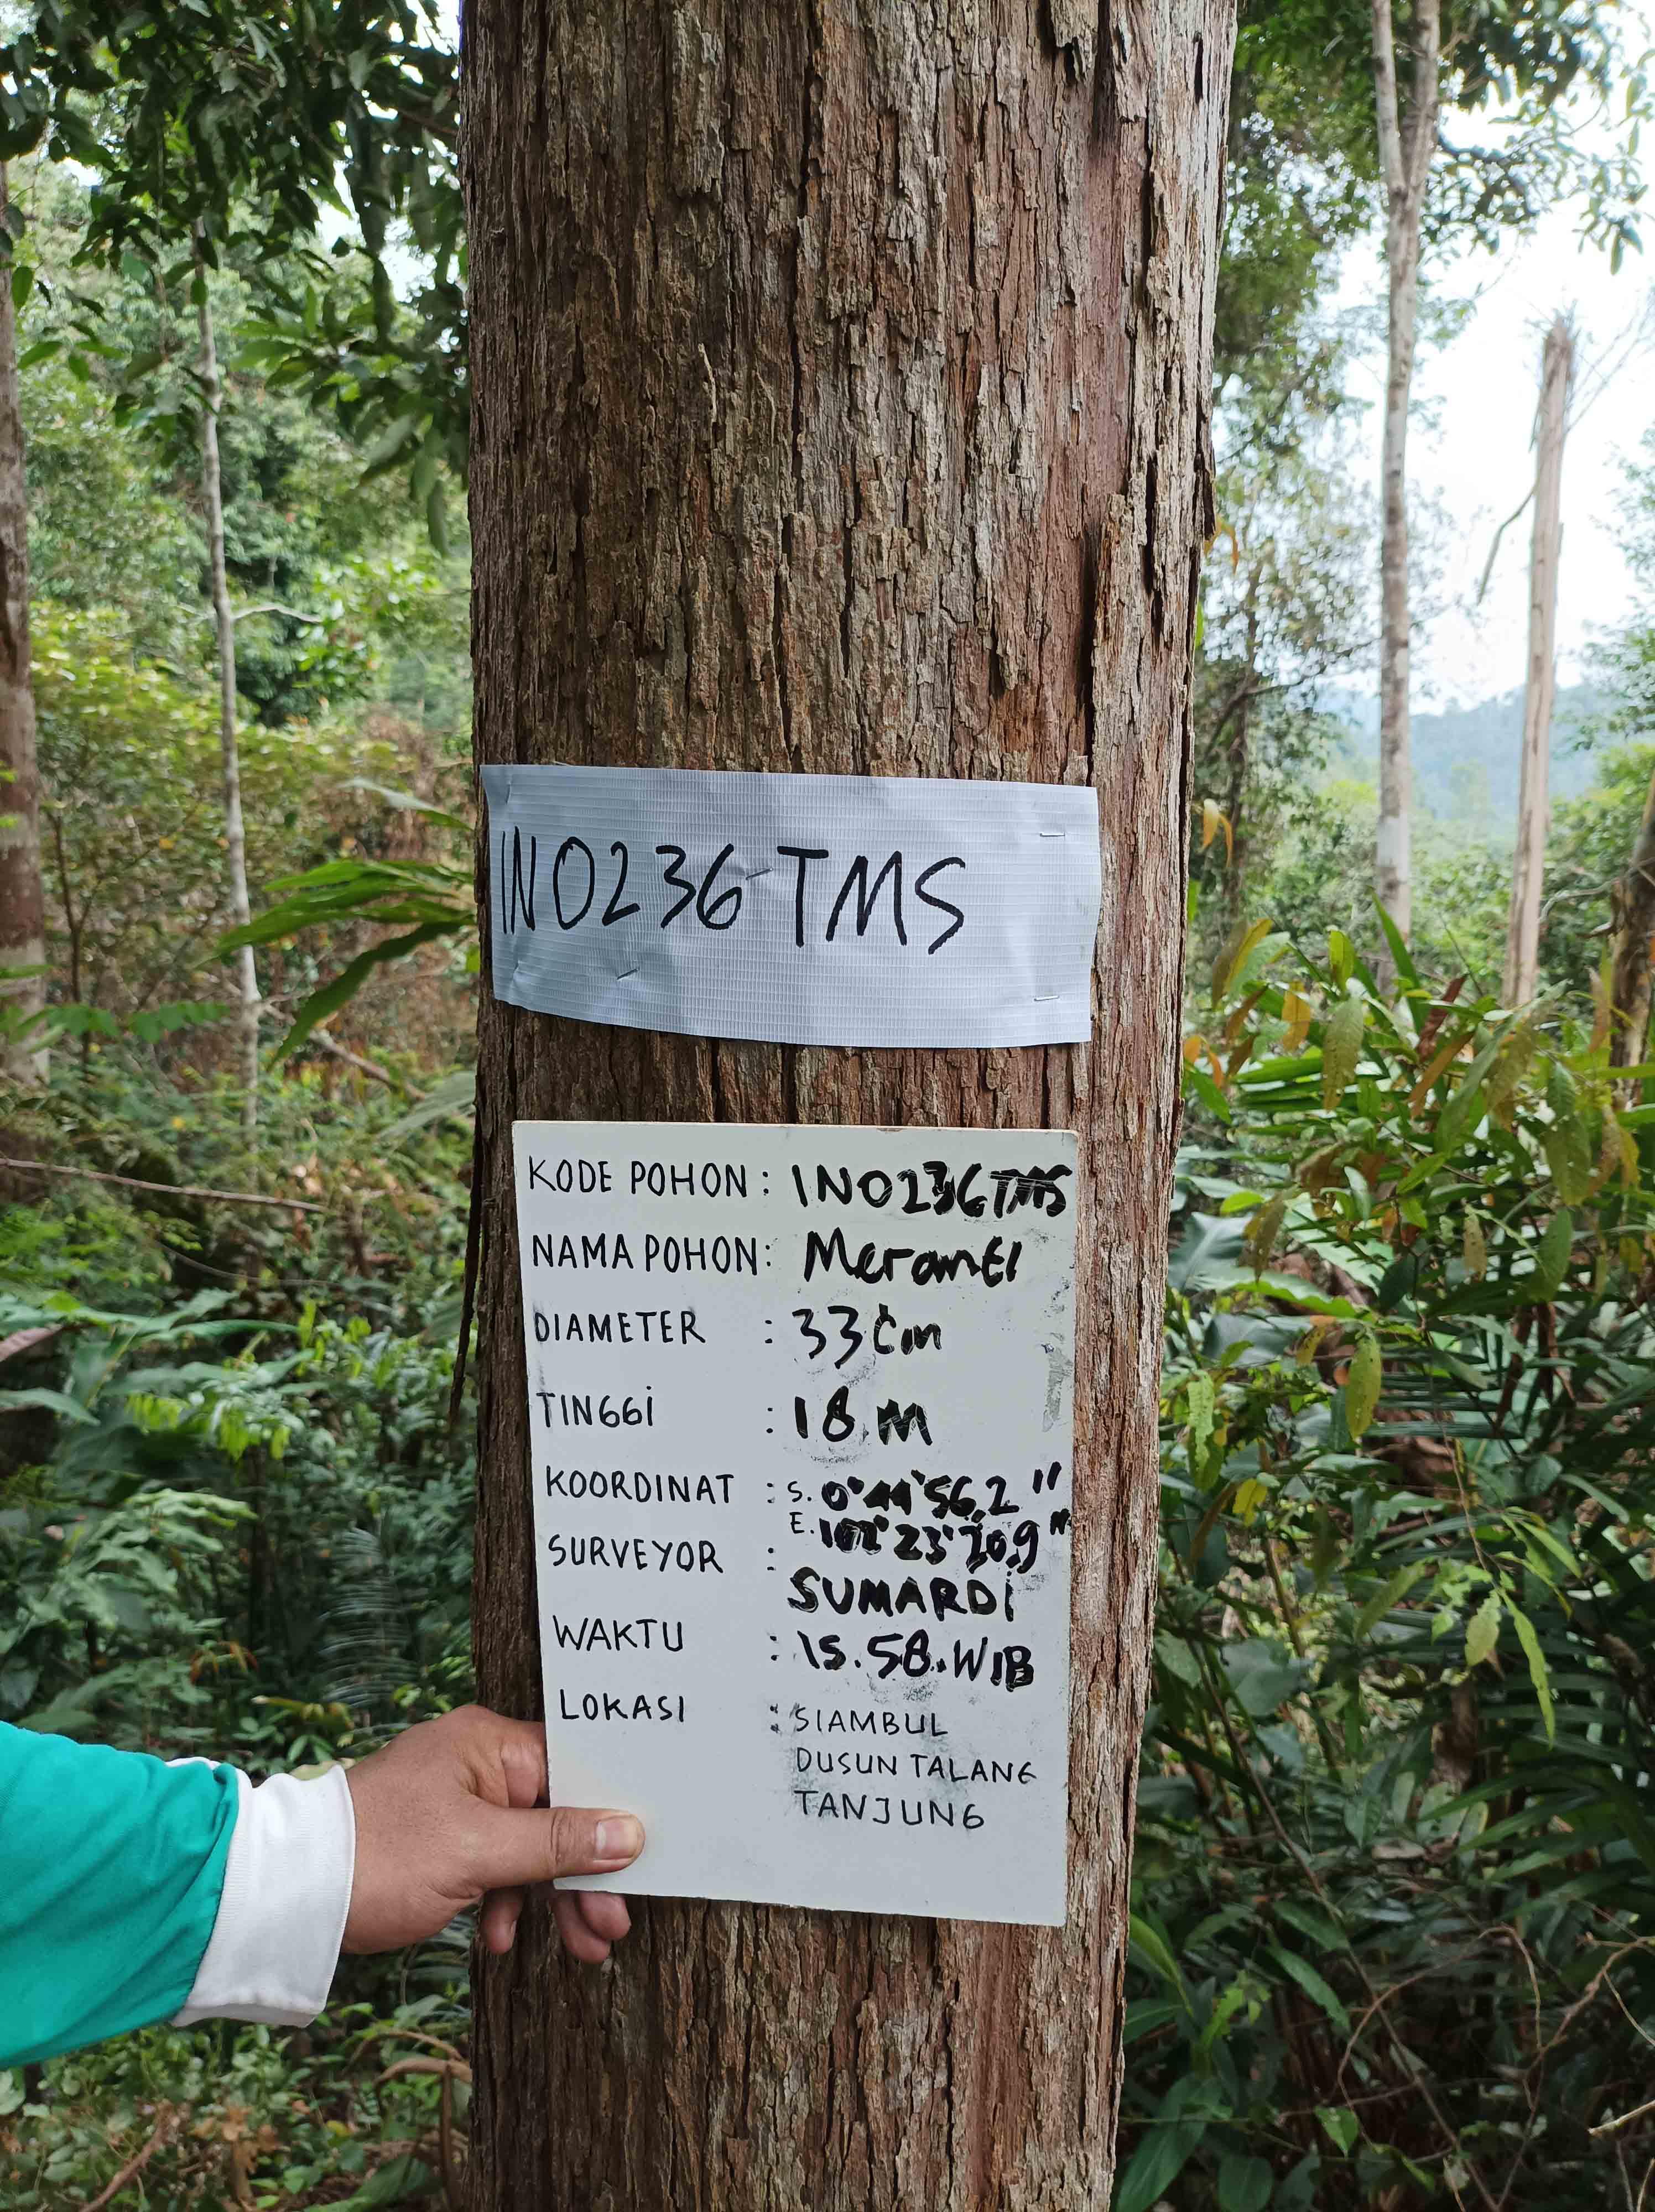 INO236 TMS
KODE POHON : INO236TMS
NAMA POHON : Meranti
DIAMETER : 33 Cm
TINGGi : 18 M
KOORDINAT : S. 0°44'56,2"
E. 102°23'20,9"
SURVEYOR : SUMARDi
WAKTU : 15.58.WIB
LOKASI : SIAMBUL
DUSUN TALANG
TANJUNG